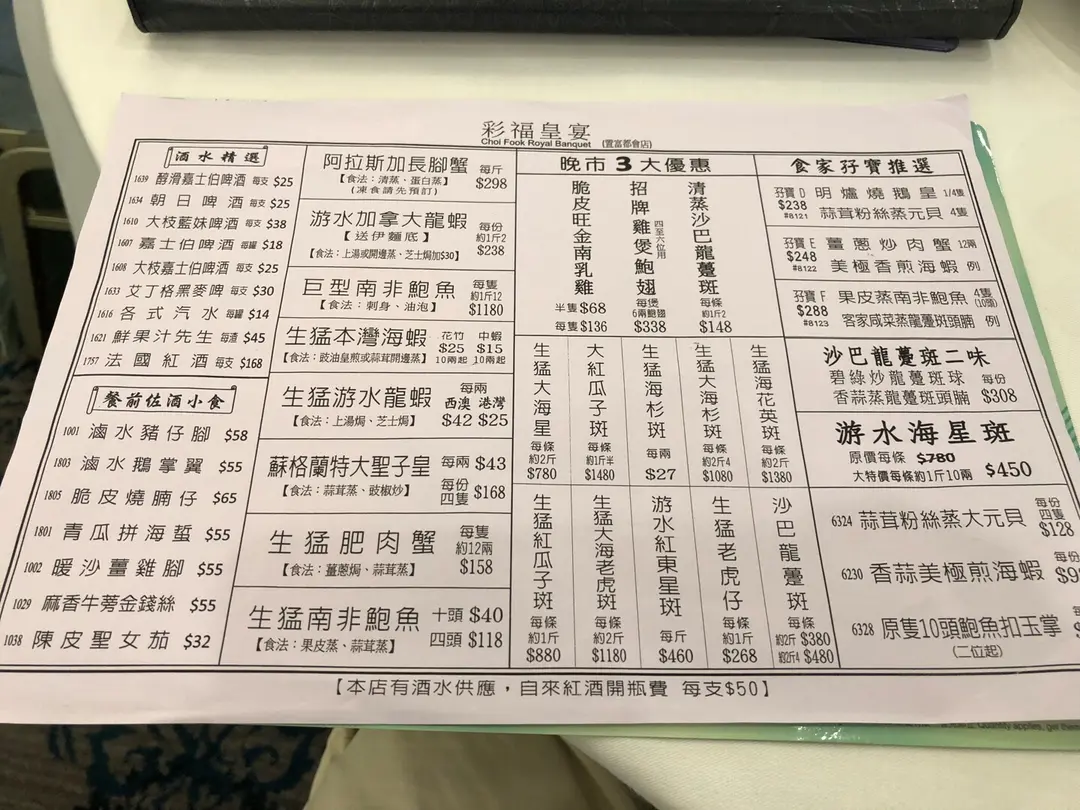 彩福皇宴
Choi Fook Royal Banquet (置富都會店)
酒水精選
1639 醇滑嘉士伯啤酒 每支 $25
1634 朝日啤酒 每支 $25
1610 大枝藍妹啤酒 每支 $38
1607 嘉士伯啤酒 每罐 $18
1608 大枝嘉士伯啤酒 每支 $25
1633 艾丁格黑麥啤 每支 $30
1616 各式汽水 每罐 $14
1621 鮮果汁先生 每渣 $45
1757 法國紅酒 每支 $168
餐前佐酒小食
1001 滷水豬仔腳 $58
1803 滷水鵝掌翼 $55
1805 脆皮燒腩仔 $65
1801 青瓜拼海蜇 $55
1002 暖沙薑雞腳 $55
1029 麻香牛蒡金錢絲 $55
1038 陳皮聖女茄 $32
阿拉斯加長腳蟹 每斤 $298
【食法：清蒸、蛋白蒸】
(凍食請先預訂)
游水加拿大龍蝦 每份 約1斤2 $238
【送伊麵底】
【食法：上湯或開邊蒸、芝士焗加$30】
巨型南非鮑魚 每隻 約1斤12 $1180
【食法：刺身、油泡】
生猛本灣海蝦 花竹 $25 10兩起 中蝦 $15 10兩起
【食法：豉油皇煎或蒜茸開邊蒸】
生猛游水龍蝦 每兩 西澳 $42 港灣 $25
【食法：上湯焗、芝士焗】
蘇格蘭特大聖子皇 每兩 $43
【食法：蒜茸蒸、豉椒炒】 每份 四隻 $168
生猛肥肉蟹 每隻 約12兩 $158
【食法：薑蔥焗、蒜茸蒸】
生猛南非鮑魚 十頭 $40
【食法：果皮蒸、蒜茸蒸】 四頭 $118
晚市3大優惠
脆皮旺金南乳雞 半隻 $68 每隻 $136
招牌雞煲鮑翅 四至六位用 每煲 6兩鮑翅 $338
清蒸沙巴龍躉斑 每條 約1斤2 $148
生猛大海星 每條 約2斤 $780
大紅瓜子斑 每條 約1斤半 $1480
生猛海杉斑 每兩 $27
生猛大海杉斑 每條 約2斤4 $1080
生猛海花英斑 每條 約2斤 $1380
生猛紅瓜子斑 每條 約1斤 $880
生猛大海老虎斑 每條 約2斤 $1180
游水紅東星斑 每斤 $460
生猛老虎仔 每條 約1斤 $268
沙巴龍躉斑 每條 約2斤 $380 約2斤4 $480
食家孖寶推選
孖寶D $238 #8121 明爐燒鵝皇 1/4隻
蒜茸粉絲蒸元貝 4隻
孖寶E $248 #8122 薑蔥炒肉蟹 12兩
美極香煎海蝦 例
孖寶F $288 #8123 果皮蒸南非鮑魚 4隻 (10頭)
客家咸菜蒸龍躉斑頭腩 例
沙巴龍躉斑二味
碧綠炒龍躉斑球 每份
香蒜蒸龍躉斑頭腩 $308
游水海星斑
原價每條 $780
大特價每條約1斤10兩 $450
6324 蒜茸粉絲蒸大元貝 每份 四隻 $128
6230 香蒜美極煎海蝦 每份
6328 原隻10頭鮑魚扣玉掌
(二位起)
【本店有酒水供應，自來紅酒開瓶費 每支$50】